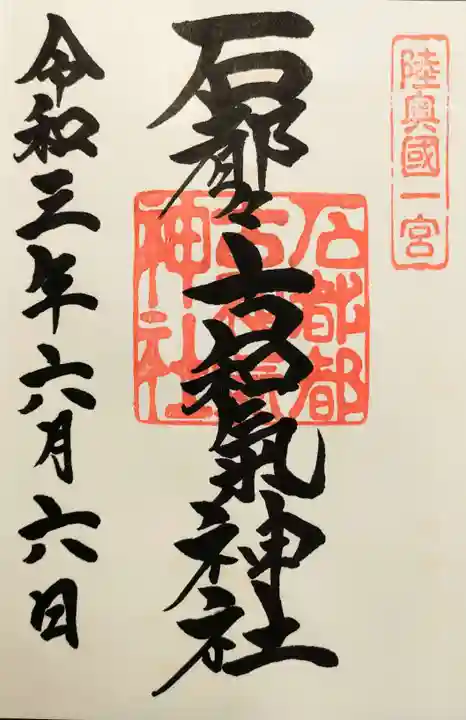 陸奥國一宮
石都々古和氣神社
石都都
古和氣
神社
令和三年六月六日